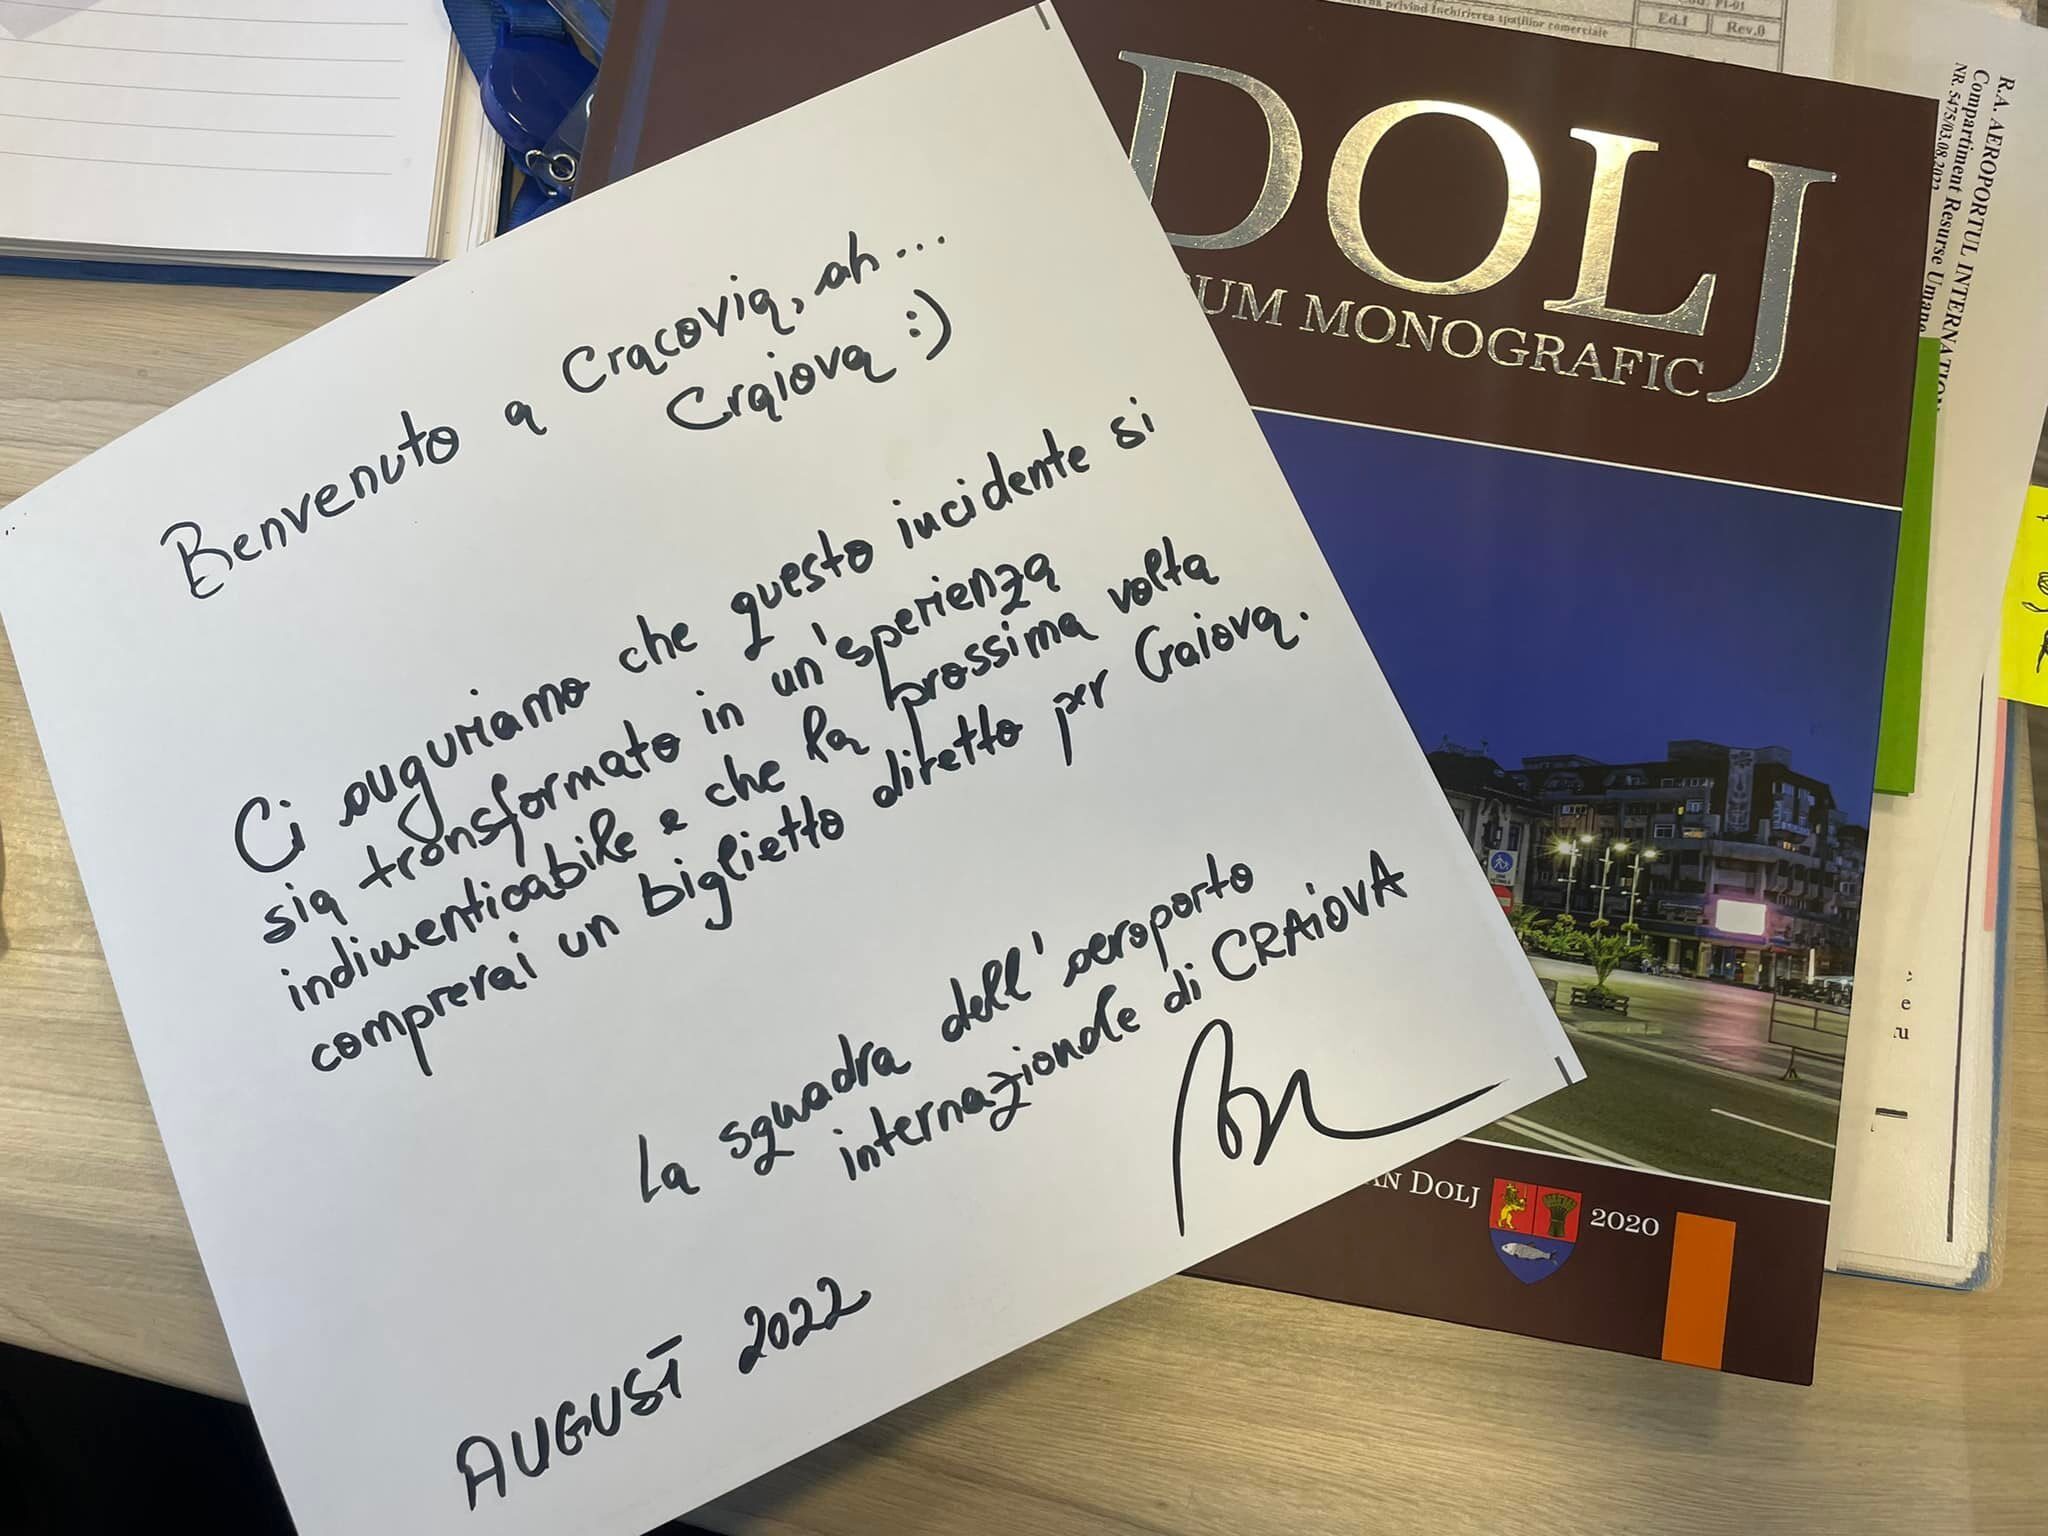 Benvenuto a Cracovia, ah...
Craiova :)
Ci auguriamo che questo incidente si
sia transformato in un'esperienza
indimenticabile e che la prossima volta
comprerai un biglietto diretto per Craiova.
La squadra dell'aeroporto
internazionale di CRAIOVA
AUGUST 2022
DOLJ
MONOGRAFIC
DOLJ
2020
privind închirierea spațiilor comerciale
Ed.I
Rev.0
R.A. AEROPORTUL INTERNATION
Compartiment Resurse Umane
NR. 5475/03.08.2022